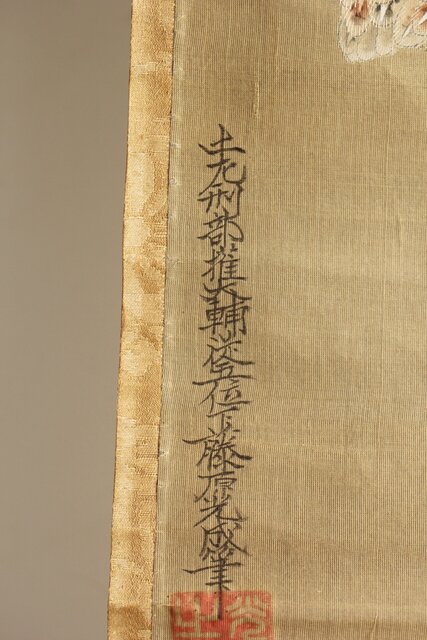 土佐刑部権大輔従五位下藤原光成筆